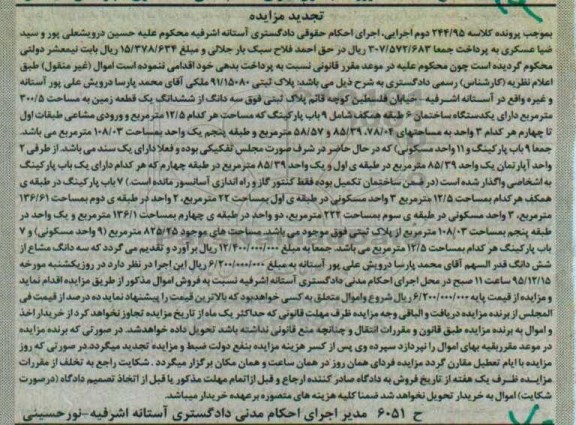 تجدید مزایده
بموجب پرونده کلاسه ۲۴۴/۹۵ دوم اجرایی، اجرای احکام حقوقی دادگستری آستانه اشرفیه محکوم علیه حسین درویشعلی پور و سید
ضیا عسکری به پرداخت جمعا ۳۰۷/۵۷۲/۶۸۳ ریال در حق احمد فلاح سبک بار جلالی و مبلغ ۱۵/۳۷۸/۶۳۴ ریال بابت نیمعشر دولتی
محکوم گردیده است چون محکوم علیه در موعد مقرر قانونی نسبت به پرداخت بدهی خود اقدامی ننموده است اموال (غیر منقول) طبق
اعلام نظریه (کارشناس) رسمی دادگستری به شرح ذیل می باشد: پلاک ثبتی ۹۱/۱۵۰۸۰ ملکی آقای محمد پارسا درویش علی پور آستانه
و غیره واقع در آستانه اشرفیه - خیابان فلسطین کوچه قائم پلاک ثبتی فوق سه دانگ از ششدانگ یک قطعه زمین به مساحت ۳۰۰/۵
مترمربع دارای یکدستگاه ساختمان ۶ طبقه همکف شامل ۹ باب پارکینگ که مساحت هر کدام ۱۲/۵ مترمربع و ورودی مشاعی طبقات اول
تا چهارم هر کدام ۳ واحد به مساحتهای ۷۸/۰۲، ۸۵/۳۹ و ۵۸/۵۷ مترمربع و طبقه پنجم یک واحد بمساحت ۱۰۸/۰۳ مترمربع می باشد.
جمعا ۹ باب پارکینگ و ۱۱ واحد مسکونی) که در حال حاضر در شرف صورت مجلس تفکیکی بوده و فعلا دارای یک سند می باشد. از طرفی ۲
واحد آپارتمان یک واحد ۸۵/۳۹ مترمربع در طبقه ی اول و یک واحد ۸۵/۳۹ مترمربع در طبقه چهارم که هر کدام دارای یک باب پارکینگ
به اشخاصی واگذار شده است (در ضمن ساختمان تکمیل بوده فقط کنتور گاز و راه اندازی آسانسور مانده است.) ۷ باب پارکینگ در طبقه ی
همکف هر کدام به مساحت ۱۲/۵ مترمربع ۳ واحد مسکونی در طبقه ی اول بمساحت ۲۲ مترمربع، ۲ واحد در طبقه ی دوم بمساحت ۱۳۶/۶۱
مترمربع، ۳ واحد مسکونی در طبقه ی سوم بمساحت ۲۲۲ مترمربع، دو واحد در طبقه ی چهارم بمساحت ۱۳۶/۱ مترمربع و یک واحد در
طبقه پنجم بمساحت ۱۰۸/۰۳ مترمربع از پلاک ثبتی فوق موجود می باشد. مساحت های موجود ۸۲۵/۲۵ مترمربع (۹ واحد مسکونی) و ۷
باب پارکینگ هر کدام به مساحت ۱۲/۵ مترمربع می باشد. جمعا به مبلغ ۱۲/۴۰۰/۰۰۰/۰۰۰ ریال برآورد و تقدیم می گردد که سه دانگ مشاع از
شش دانگ قدر السهم آقای محمد پارسا درویش علی پور آستانه به مبلغ ۶/۲۰۰/۰۰۰/۰۰۰ ریال این اجرا در نظر دارد در روز یکشنبه مورخه
۹۵/۱۲/۱۵ ساعت ۱۱ صبح در محل اجرای احکام مدنی دادگستری آستانه اشرفیه نسبت به فروش اموال مذکور از طریق مزایده اقدام نماید
و مزایده از قیمت پایه ۶/۲۰۰/۰۰۰/۰۰۰ ریال شروع و اموال متعلق به کسی خواهد بود که بالاترین قیمت را پیشنهاد نماید ده درصد از قیمت فی
المجلس از برنده مزایده دریافت و الباقی وجه مزایده ظرف مهلت قانونی که حداکثر یک ماه از تاریخ مزایده تجاوز نخواهد کرد از خریدار اخذ
و اموال به برنده مزایده طبق قانون و مقررات انتقال و چنانچه منع قانونی نداشته باشد تحویل داده خواهد شد. در صورتی که برنده مزایده
در موعد مقرر بقیه بهای اموال را نپردازد سپرده وی پس از کسر هزینه مزایده بنفع دولت ضبط و مزایده تجدید میگردد. در صورتی که روز
مزایده با ایام تعطیل مقارن گردد مزایده فردای همان روز در همان ساعت و همان مکان برگزار میگردد. شکایت راجع به تخلف از مقررات
مزایده ظرف یک هفته از تاریخ فروش به دادگاه صادر کننده ارجاع و قبل از اتمام مهلت مذکور یا قبل از اتخاذ تصمیم دادگاه (در صورت
شکایت) اموال به خریدار تحویل نخواهد شد ضمنا کلیه هزینه های متصوره بر عهده خریدار میباشد.
ح ۶۰۵۱ مدیر اجرای احکام مدنی دادگستری آستانه اشرفیه - نورحسینی